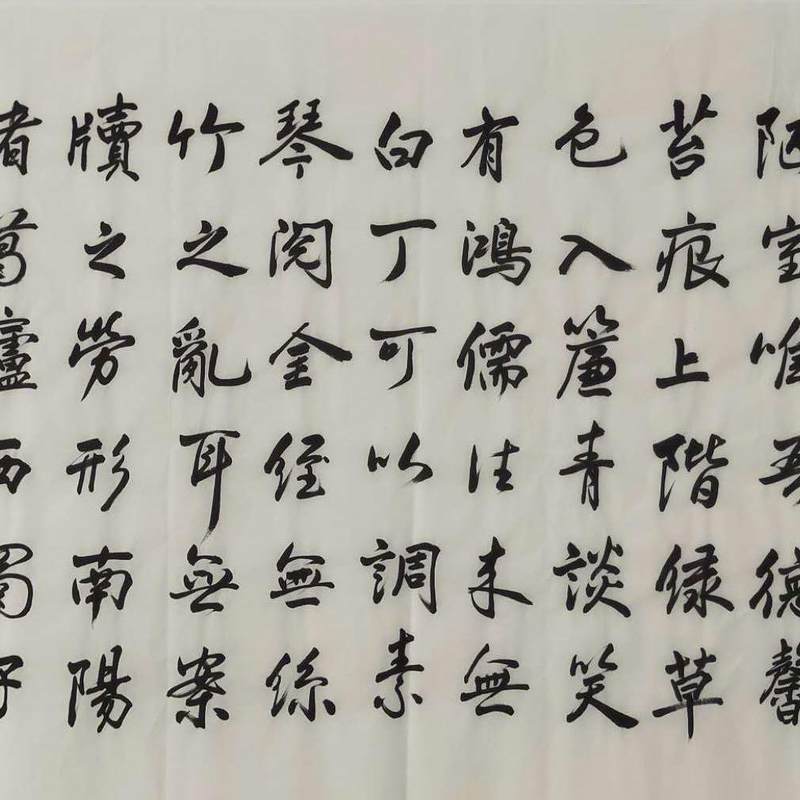 陋室唯吾德馨
苔痕上階緑草
色入簾青談笑
有鴻儒往来無
白丁可以調素
琴閲金經無絲
竹之亂耳無案
牘之勞形南陽
諸葛廬西蜀子